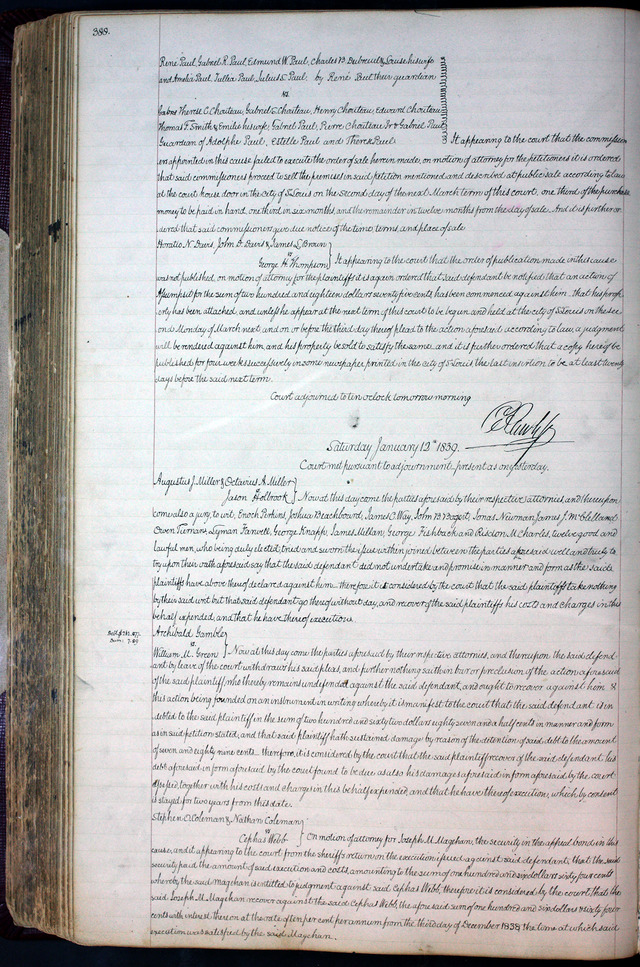 388.
René Paul, Gabriel R. Paul, Edmund W. Paul, Charles B. Dubreuil & Louise his wife
and Amelia Paul, Tullia Paul, Julius E. Paul by René Paul their guardian
vs
Gabriel Therese C. Chouteau, Gabriel S. Chouteau, Henry Chouteau, Edward Chouteau
Thomas F. Smith & Emilie his wife, Gabriel Paul, Pierre Chouteau Jr & Gabriel Paul
Guardian of Adolphe Paul, Estelle Paul and Therese Paul It appearing to the court that the commission
ers appointed in this cause failed to execute the order of sale herein made, on motion of attorney for the petitioners it is ordered
that said commissioners proceed to sell the premises in said petition mentioned and described at public sale according to law
at the court house door in the city of St Louis on the second day of the next March term of this court, one third of the purchase
money to be paid in hand, one third in six months, and the remainder in twelve months from the day of sale. And it is further or
dered that said commissioners give due notice of the time, terms, and place of sale
Horatio N. Davis, John D. Davis & James S. Brown
vs
George H. Thompson It appearing to the court that the order of publication made in this cause
was not published, on motion of attorney for the plaintiffs it is again ordered that said defendant be notified that an action of
Assumpsit for the sum of two hundred and eighteen dollars seventy five cents has been commenced against him that his prop
erty has been attached, and unless he appear at the next term of this court to be begun and held at the city of St Louis on the sec
ond Monday of March next and on or before the third day thereof plead to the action aforesaid according to law, a judgment
will be rendered against him and his property be sold to satisfy the same and it is further ordered that a copy hereof be
published for four weeks successively in some newspaper printed in the city of St Louis the last insertion to be at least twenty
days before the said next term.
Court adjourned to ten oclock tomorrow morning
Saturday January 12th 1839.
Court met pursuant to adjournment, present as on yesterday.
Augustus J. Miller & Octavius A. Miller
Jason Holbrook Now at this day come the parties aforesaid by their respective attornies, and thereupon
come also a jury, to wit, Enoch Perkins, Joshua Beachbourd, James C. Way, John B. Bogert, Jonas Newman, James J. McClelland
Owen Tiernans, Lyman Farwell, George Knapp, James Mellan, George Fishback and Risdon M. Charles, twelve good and
lawful men, who being duly elected, tried and sworn the issue within joined between the parties aforesaid well and truly to
try upon their oath aforesaid say that the said defendant did not undertake and promise in manner and form as the said
plaintiffs have above thereof declared against him therefore it is considered by the court that the said plaintiffs take nothing
by their said writ but that said defendant go thereof without day, and recover of the said plaintiffs his costs and charges in this
behalf expended, and that he have thereof execution.
Archibald Gamble
vs
William M. Green Now at this day come the parties aforesaid by their respective attornies, and thereupon the said defend
ant by leave of the court withdraws his said pleas, and further nothing saith in bar or preclusion of the action aforesaid
of the said plaintiff, who thereby remains undefended against the said defendant, and ought to recover against him &
this action being founded on an instrument in writing whereby it is manifest to the court that the said defendant is in
debted to the said plaintiff in the sum of two hundred and sixty two dollars eighty seven and a half cents in manner and form
as in said petition stated, and that said plaintiff hath sustained damage by reason of the detention of said debt to the amount
of seven and eighty nine cents. Therefore, it is considered by the court that the said plaintiff recover of the said defendant his
debt aforesaid in form aforesaid by the court found to be due as also his damages aforesaid in form aforesaid by the court
assessed, together with his costs and charges in this behalf expended, and that he have thereof execution, which by consent
is stayed for two years from this date.
Stephen O. Coleman & Nathan Coleman
vs
Cephas Webb On motion of attorney for Joseph M. Magehan, the security in the appeal bond in this
cause, and it appearing to the court from the sheriff's return on the execution issued against said defendant, that the said
security paid the amount of said execution and costs, amounting to the sum of one hundred and six dollars sixty four cents
whereby the said magehan is entitled to judgment against said Cephas Webb, therefore it is considered by the court, that the
said Joseph M. Magehan recover against the said Cephas Webb, the aforesaid sum of one hundred and six dollars & sixty four
cents with interest thereon at the rate of ten per cent per annum from the third day of December 1838 the time at which said
execution was satisfied by the said Magehan.